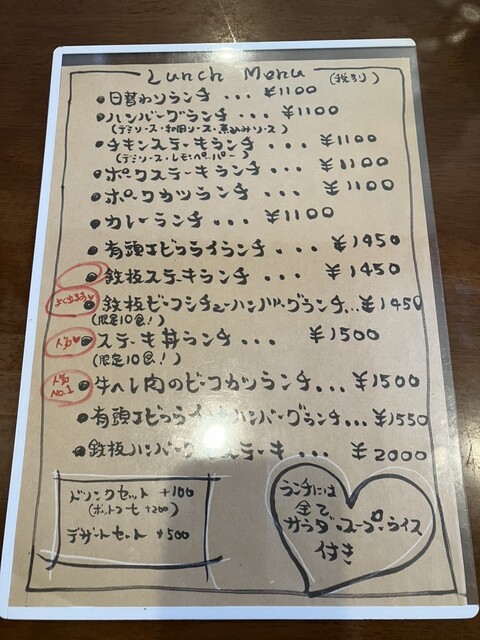 Lunch Menu (税別)
•日替わりランチ... ¥1100
•ハンバーグランチ... ¥1100
(デミソース・和風ソース・煮込みソース)
•チキンステーキランチ... ¥1100
(デミソース・レモンペーパー)
•ポークステーキランチ... ¥1100
•ポークカツランチ... ¥1100
•カレーランチ... ¥1100
•有頭エビフライランチ... ¥1450
•鉄板ステーキランチ... ¥1450
よく出る♥ •鉄板ビーフシチューハンバーグランチ...¥1450
(限定10食!)
人気♥ •ステーキ丼ランチ... ¥1500
(限定10食!)
人気No.1 •牛ヘレ肉のビーフカツランチ... ¥1500
•有頭エビフライ ハンバーグランチ... ¥1550
•鉄板ハンバーグ ステーキ... ¥2000
ドリンクセット +100
(ホットコーヒー +200)
デザートセット +500
ランチには
全て
サラダ・スープ・ライス
付き